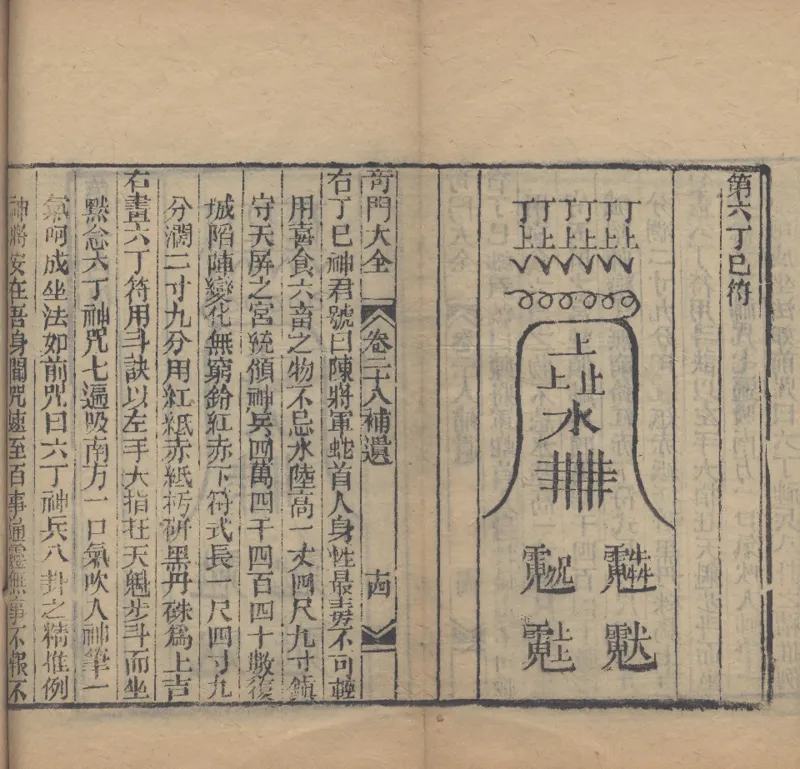 第六丁巳符
丁丁丁丁丁丁
上上上上上上
上
上止
水
奇門大全 卷二十八補遺 十四
右丁巳神君號曰陳將軍蛇首人身性最毒不可輕
用喜食六畜之物不忌水陸高一丈四尺九寸鎮
守天屏之宮統領神兵四萬四千四百四十數復
城陷陣變化無窮紛紅赤下符式長一尺四寸九
分濶二寸九分用紅紙赤紙朽研黑丹硃爲上吉
右畫六丁符用斗訣以左手大指在天魁步斗而坐
黙念六丁神咒七遍吸南方一口氣吹入神筆一
氣呵成坐法如前咒曰六丁神兵八卦之精堆例
神將安在吾身聞咒速至百事通靈無事不報不